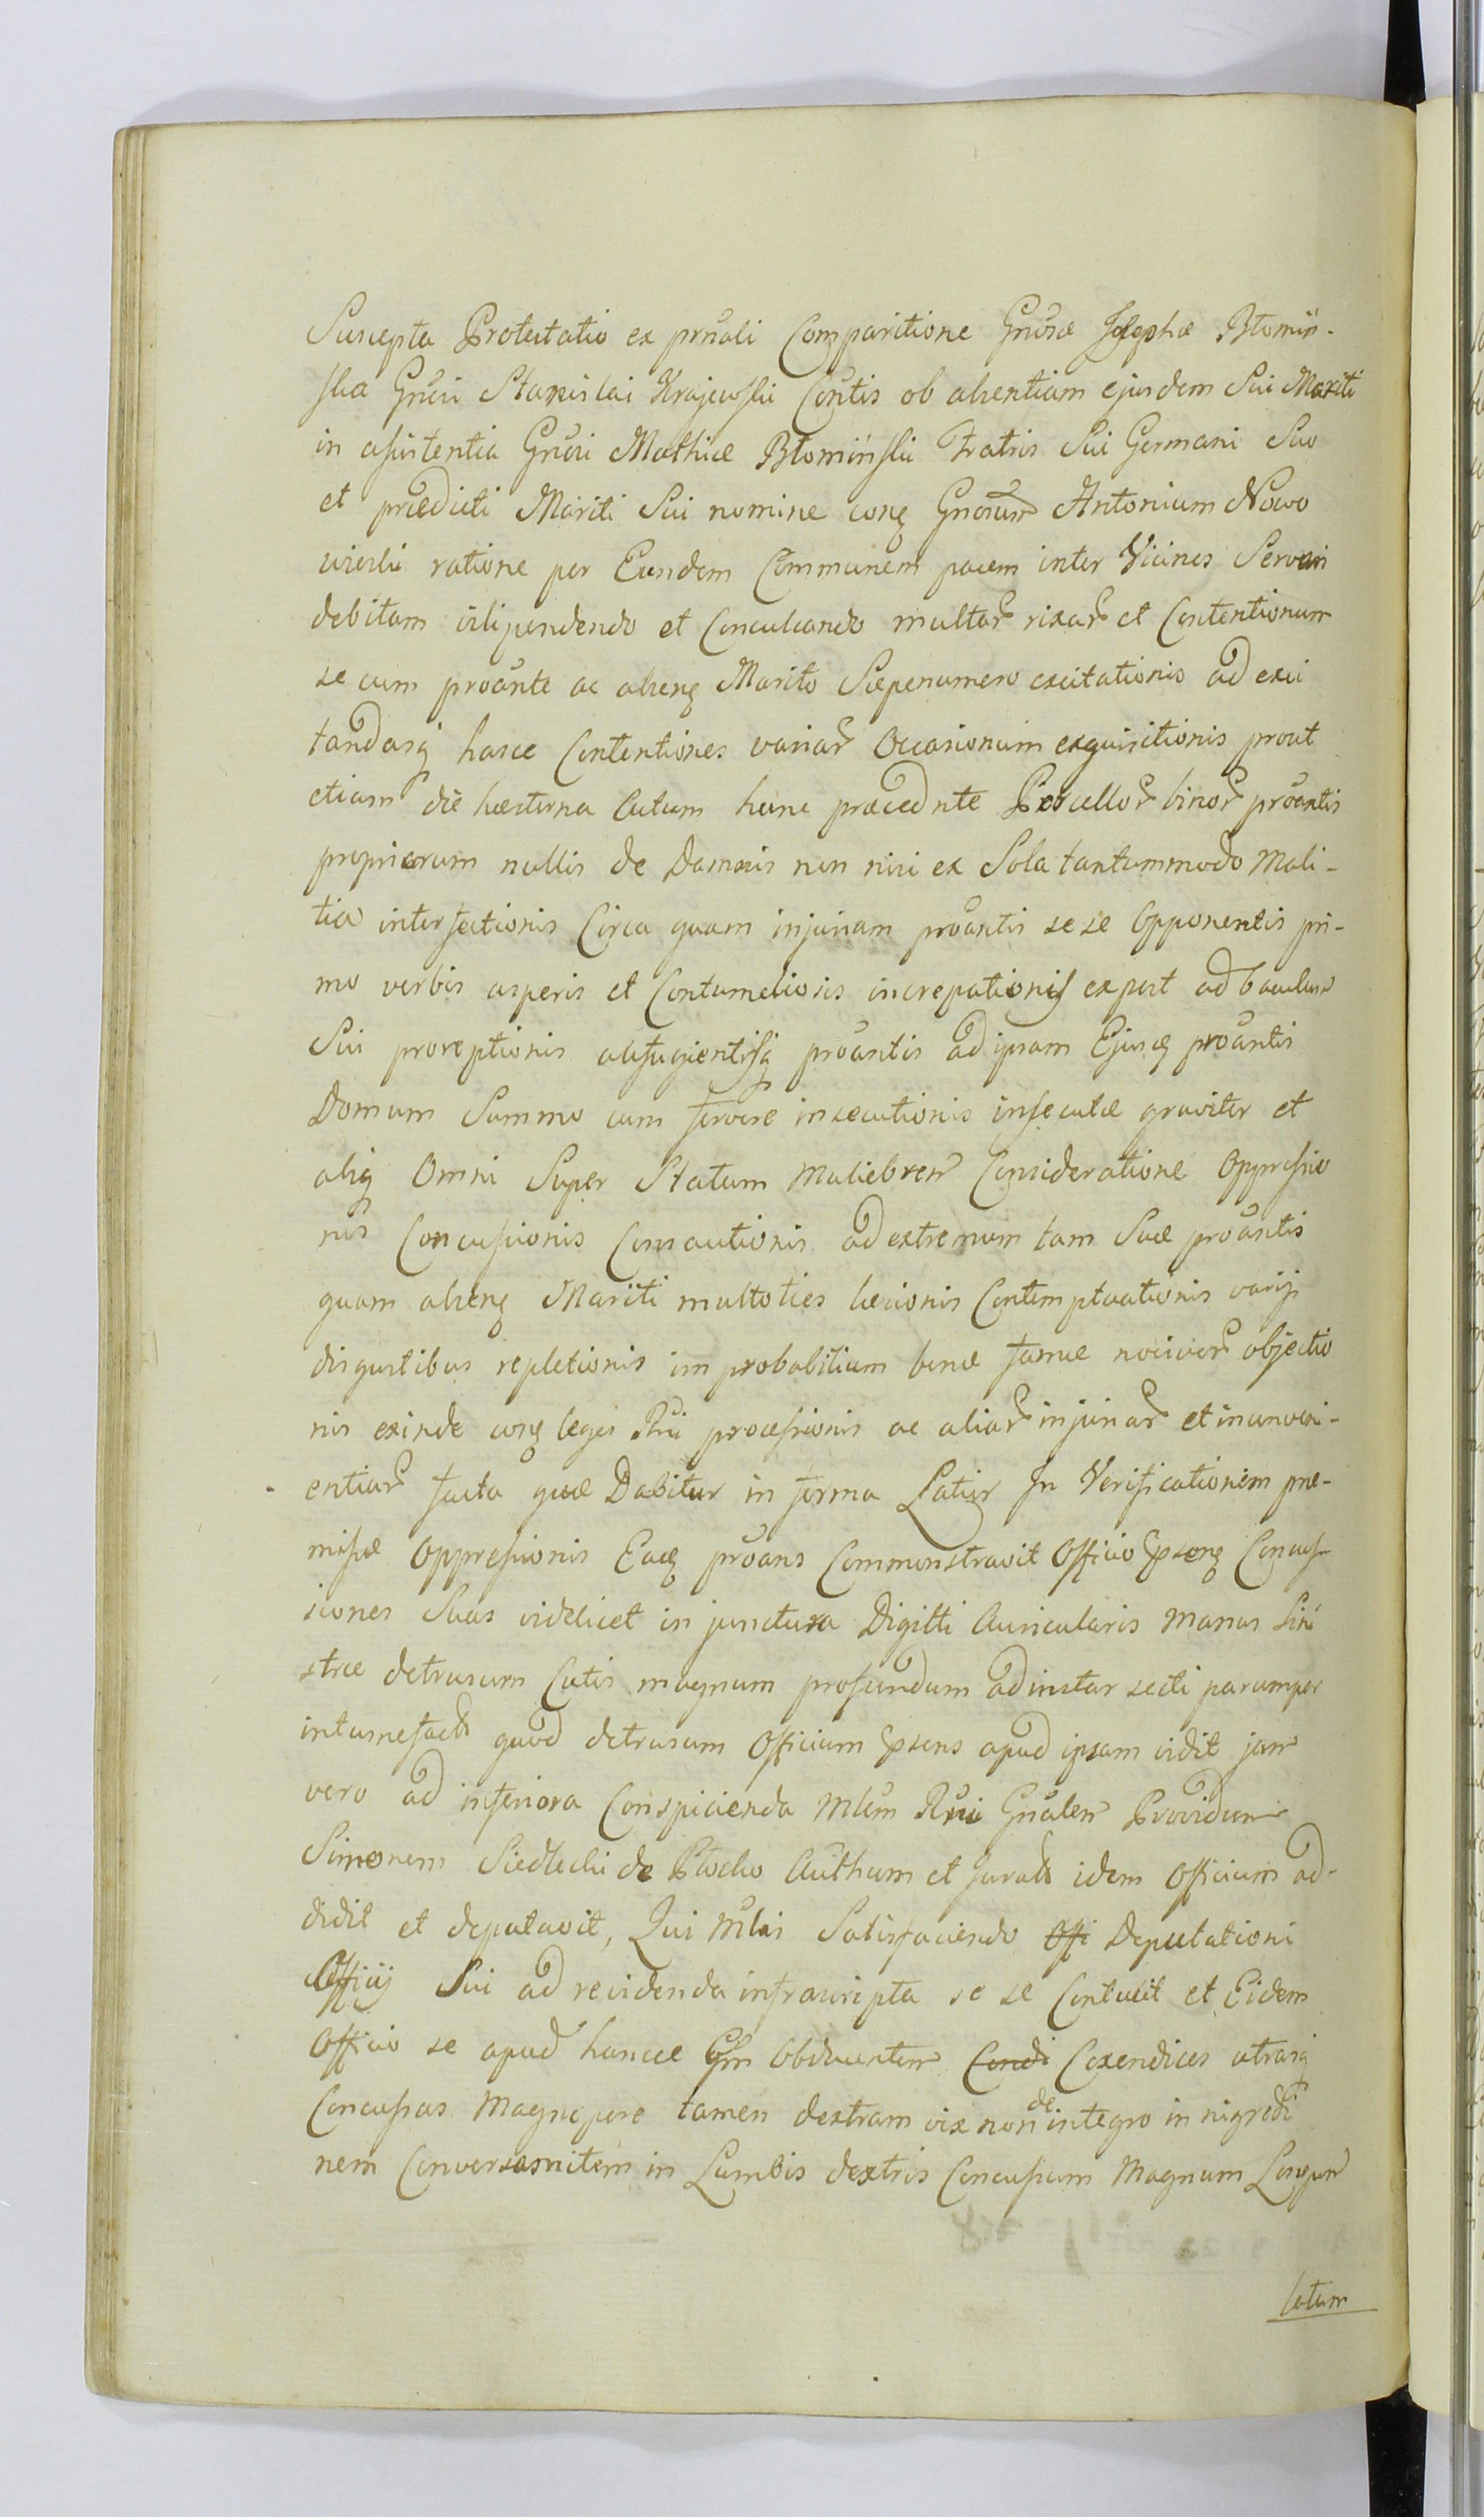 Suscepta Protestatio ex prnali Comparitione Gnosæ Josephæ Błomiń-
ska Gnosi Stanislai Krajewski Contis ob absentiam ejusdem Sui Mariti
in assistentia Gnosi Mathiæ Błomiński Fratris Sui Germani Suo
et prædicti Mariti Sui nomine conq Gnosum Antonium Nowo
wieski ratione per Eundem Communem pacem inter Vicinos Servari
debitam vilipendendo et Conculcando multar rixar et Contentionum
se cum proante ac absenq Marito Sæpenumero excitationis ad exci
tandasq hasce Contentiones variar Occasionum exquisitionis prout
etiam die hæsterna Actum hunc præcednte Porcellor binor proantis
propriorum nullis de Damnis non nisi ex Sola tantummodo Mali-
tia interfectionis Circa quam injuriam proantis se se Opponentis pri-
mo verbis asperis et Contumeliosis increpationis expost ad baculum
Sui proreptionis aufugientisq proantis ad ipsam Ejusq proantis
Domum Summo cum fervore insecutionis insecutæ graviter et
absq Omni Super Statum Muliebrem Consideratione Oppressio
nis Concussionis Consauctionis ad extremum tam Suæ proantis
quam absenq Mariti multoties læsionis Contemptuationis varijs
disgustibus repletionis improbabilium bonæ famæ nocivor objectio
nis exinde conq leges Rni processionis ac aliar injuriar et inconveni-
entiar facta quæ Dabitur in forma Latior In Verificationem præ-
missæ Oppressionis Eaq proans Commonstravit Officio Psenq Concus-
siones Suas videlicet in junctura Digitti Auricularis Manus Sini
stræ detrusum Cutis magnum profundum ad instar secti parumper
intumefact quod detrusum Officium Psens apud ipsam vidit jam
vero ad inferiora Conspicienda Mlem Rni Gnalem Providum
Simonem Siedlecki de Płocko Authum et Jurat idem Officium ad-
didit et deputavit, Qui Mlis Satisfaciendo Offi Deputationi
Officij Sui ad revidenda infrascripta se se Contulit et Eidem
Officio se apud hancce Obducentem Condi Coxendices utrasq
Concussas Magnopere tamen dextram vix non de integro in nigredi
nem Conversam item in Lumbis dextris Concussum Magnum Longum
latum